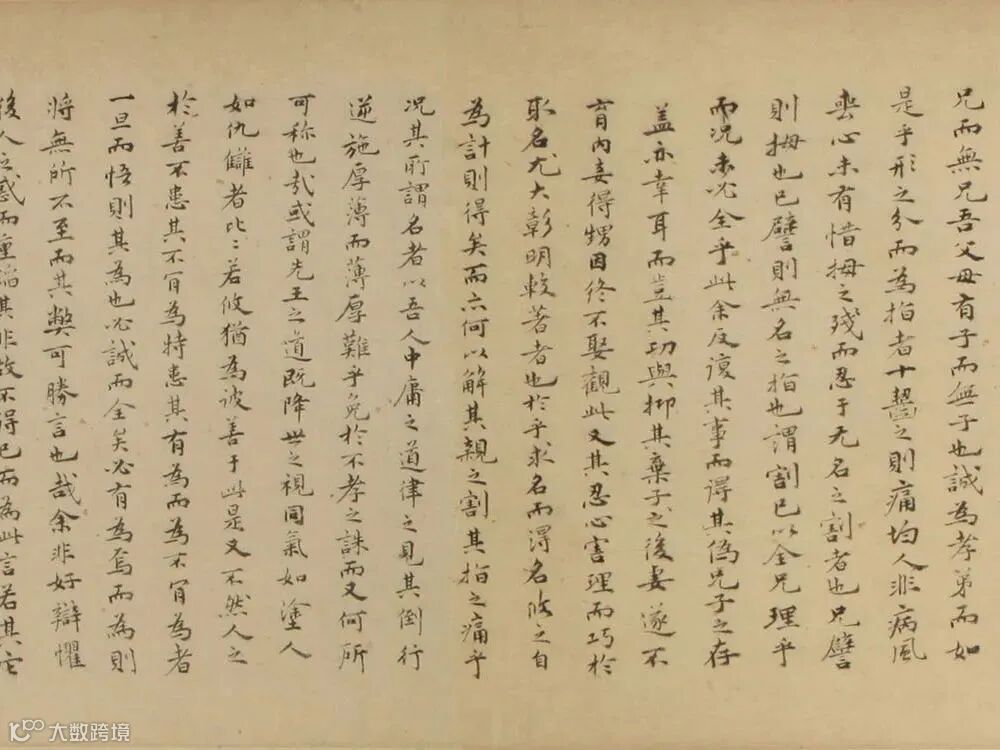 兄而無兄吾父母有子而無子也誠為孝弟而如
是乎形之分而為指者十齧之則痛均人非病風
喪心未有惜拇之殘而忍于无名之割者也兄譬
則拇也已譬則無名之指也謂割已以全兄理乎
而況未必全乎此余反復其事而得其偽兄子之存
盖亦幸耳而豈其功與抑其棄子之後妻遂不
育內妾得甥因終不娶觀此又其忍心害理而巧於
取名尤大彰明較著者也於乎求名而得名攸之自
為計則得矣而亦何以解其親之割其指之痛乎
况其所謂名者以吾人中庸之道律之見其倒行
逆施厚薄而薄厚難乎免於不孝之誅而又何所
可称也哉或謂先王之道既降世之視同氣如塗人
如仇讎者比〻若攸猶為彼善于此是又不然人之
於善不患其不肯為特患其有為而為不肯為者
一旦而悟則其為也必誠而全矣必有為焉而為則
將無所不至而其弊可勝言也哉余非好辯懼
後人之惑而重蹈其非故不得已而為此言若其它
大数跨境